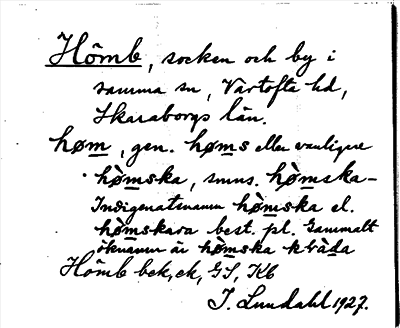 Hömb, socken och by i
samma sn, Vartofta hd,
Skaraborgs län.
høm, gen. høms eller vanligare
hømska, sms. hømska-
Indigenatsnamn hømska el.
hømskara best. pl. Gammalt
öknamn är hømska kråda
Hömb bek, ek, GS, Kb
J. Lundahl 1927.